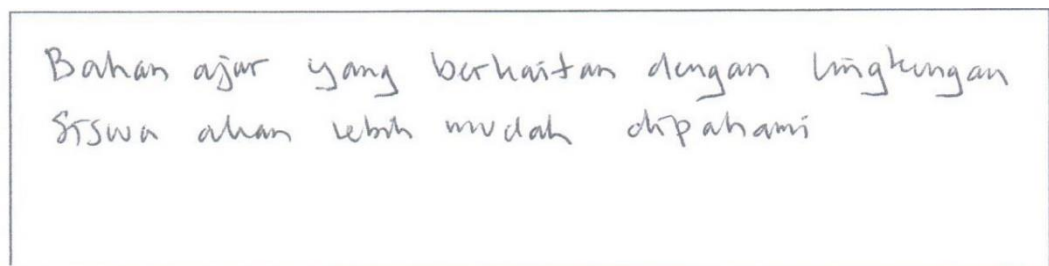 Bahan ajar yang berkaitan dengan lingkungan
siswa akan lebih mudah dipahami